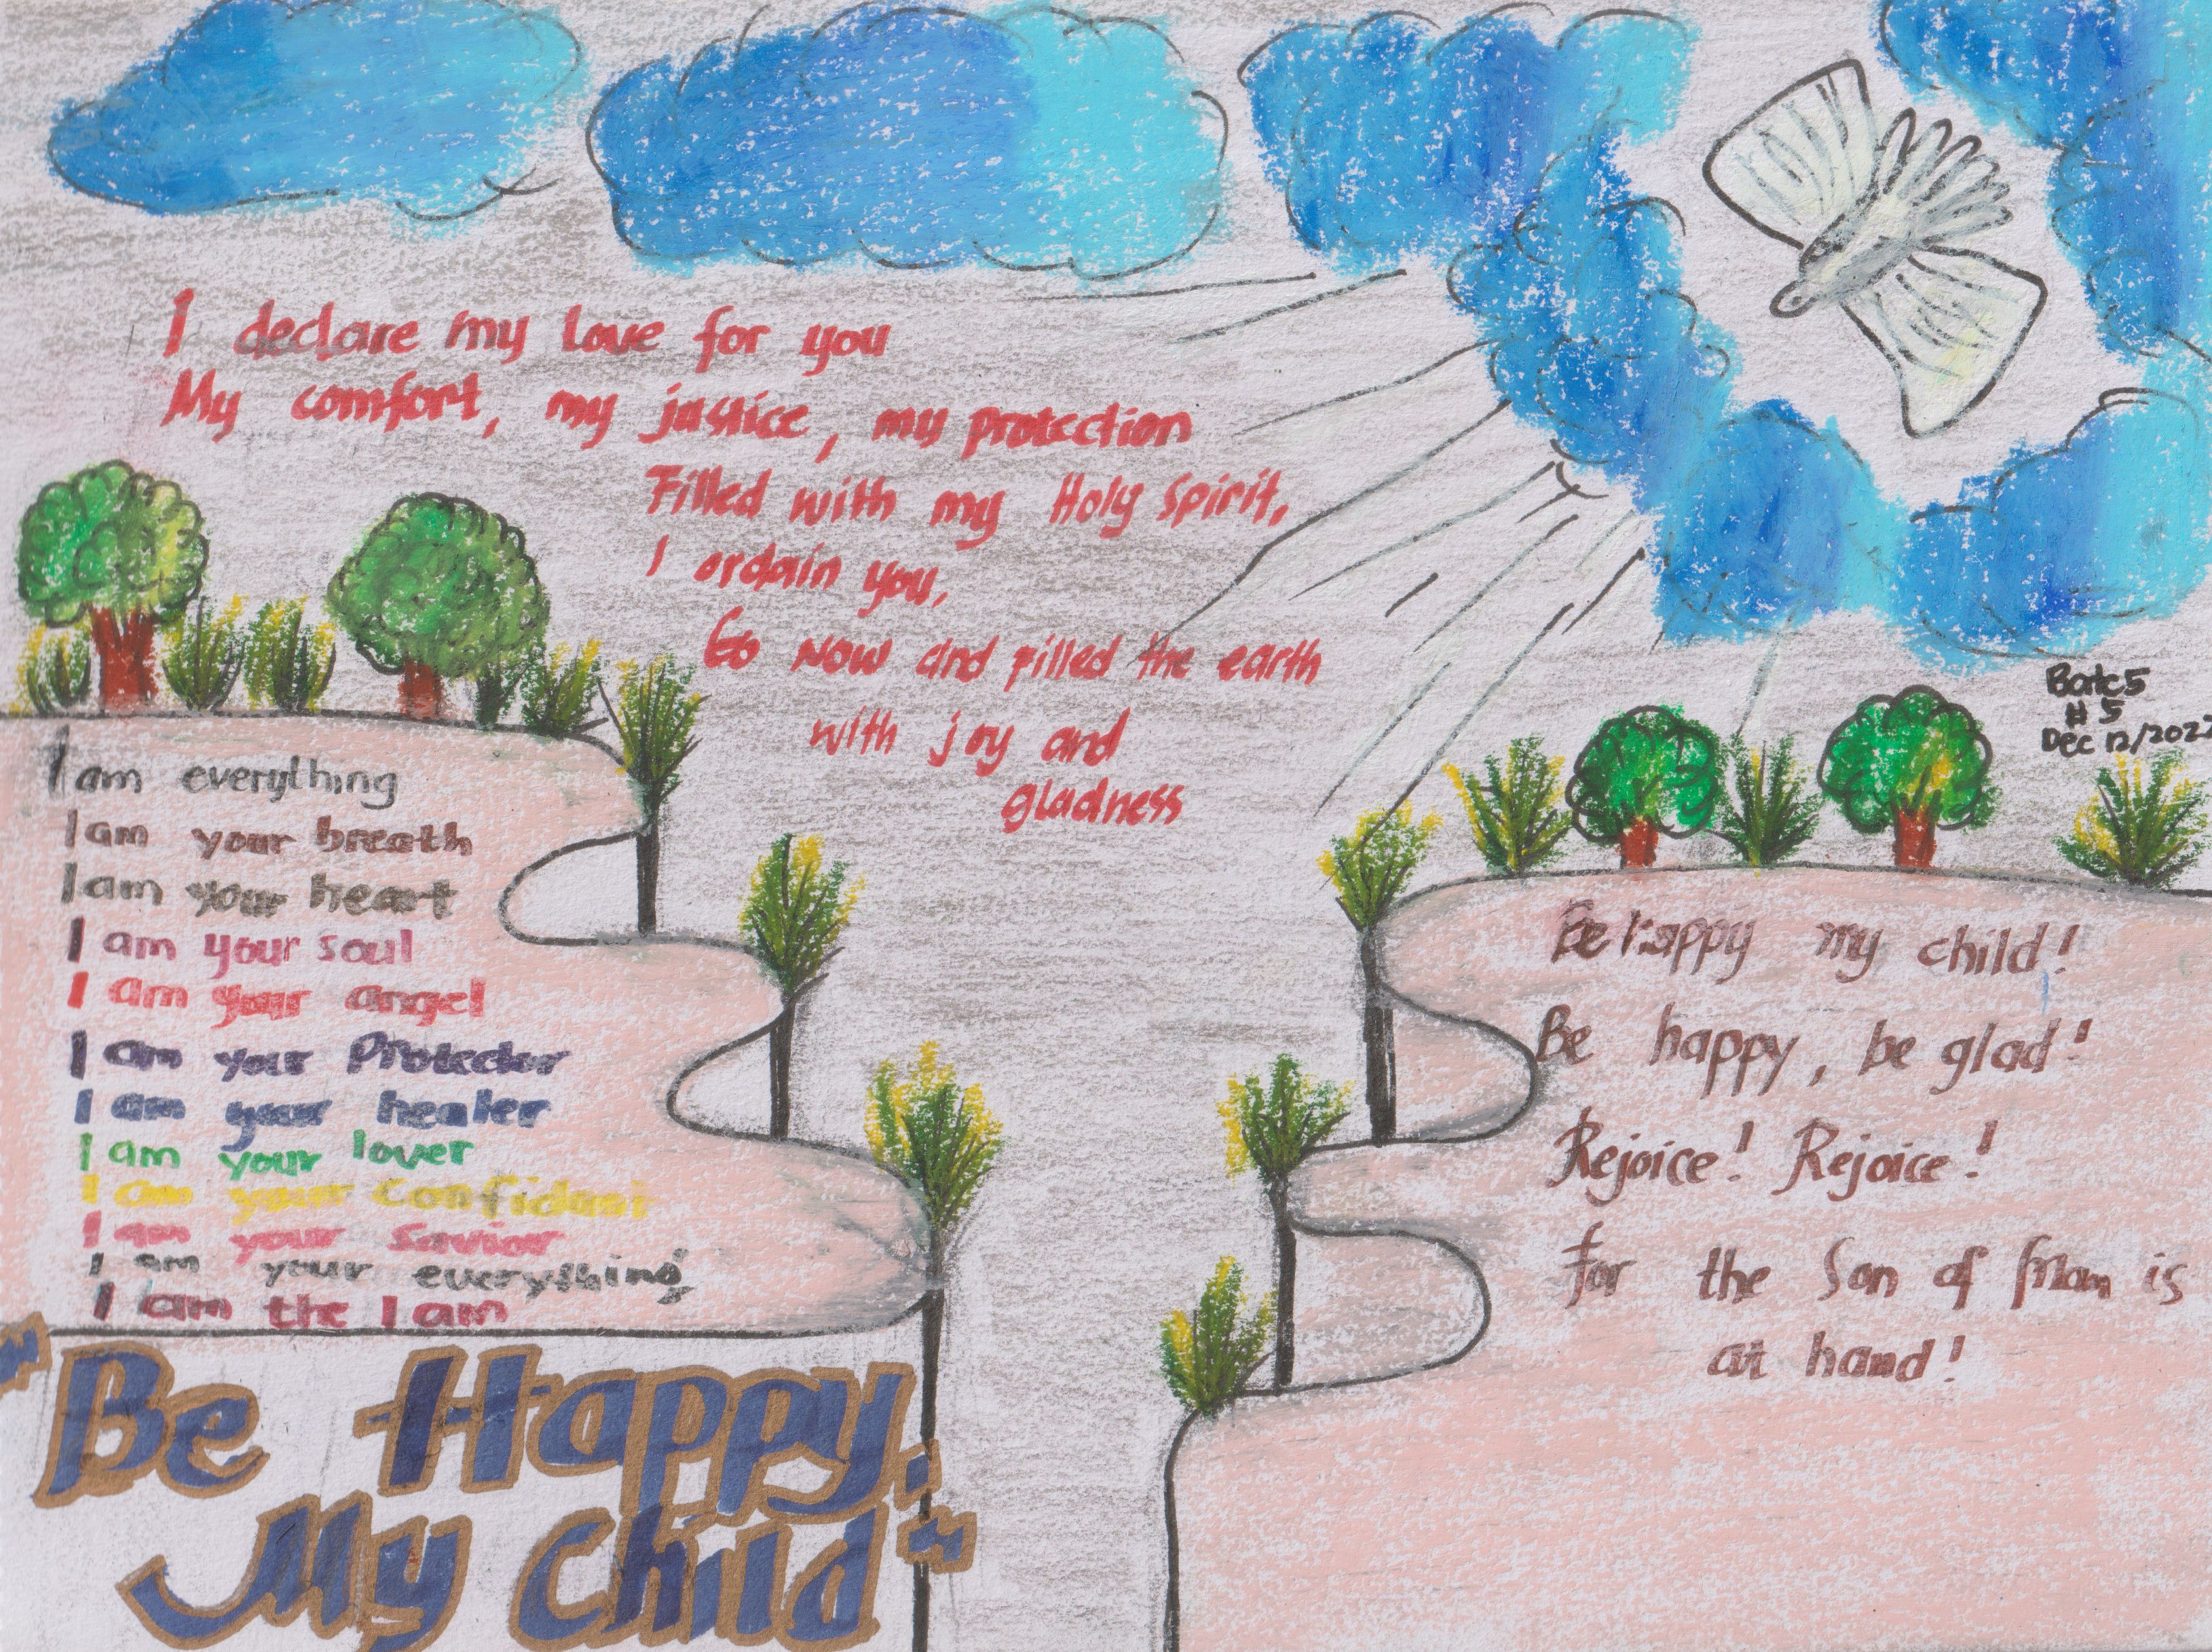 I declare my love for you
My comfort, my justice, my protection
Filled with my Holy Spirit,
I ordain you,
Go Now and filled the earth
with joy and
gladness
I am everything
I am your breath
I am your heart
I am your soul
I am your angel
I am your Protector
I am your healer
I am your lover
I am your Confidant
I am your Savior
I am your everything
I am the I am
"Be Happy,
My Child"
# 5
Dec 12/2022
Be happy my child!
Be happy, be glad!
Rejoice! Rejoice!
for the Son of Man is
at hand!